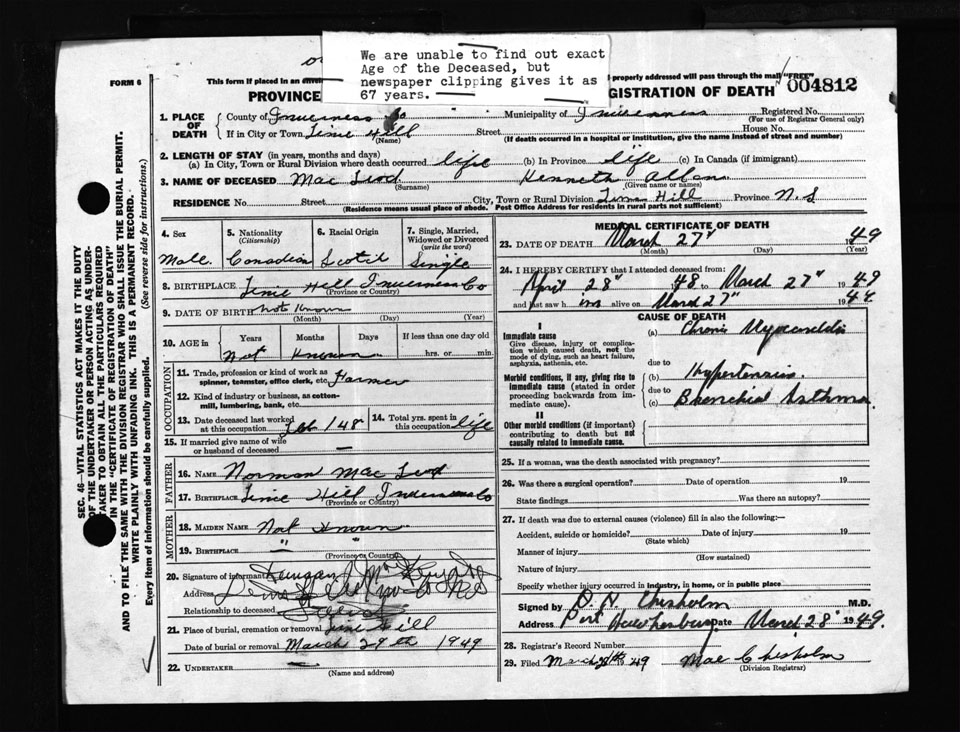 We are unable to find out exact
Age of the Deceased, but
newspaper clipping gives it as
67 years.
FORM 6
This form if placed in an
properly addressed will pass through the mail "FREE"
004812
PROVINCE
REGISTRATION OF DEATH
1. PLACE OF DEATH
County of Inverness Co Municipality of Inverness Registered No.
(For use of Registrar General only)
If in City or Town Lime Hill Street House No.
(Name) (If death occurred in a hospital or institution, give the name instead of street and number)
2. LENGTH OF STAY (in years, months and days)
(a) In City, Town or Rural Division where death occurred life (b) In Province life (c) In Canada (if immigrant)
3. NAME OF DECEASED Mac Leod Kenneth Allan
(Surname) (Given name or names)
RESIDENCE No. Street City, Town or Rural Division Lime Hill Province N.S
(Residence means usual place of abode. Post Office Address for residents in rural parts not sufficient)
4. Sex
5. Nationality
(Citizenship)
6. Racial Origin
7. Single, Married,
Widowed or Divorced
(write the word)
Male. Canadian Scotch Single
8. BIRTHPLACE Lime Hill Inverness Co
(Province or Country)
9. DATE OF BIRTH Not Known
(Month) (Day) (Year)
10. AGE in
Years Months Days If less than one day old
Not Known hrs. or min.
OCCUPATION
11. Trade, profession or kind of work as
spinner, teamster, office clerk, etc. Farmer
12. Kind of industry or business, as cotton-
mill, lumbering, bank, etc.
13. Date deceased last worked
at this occupation
14. Total yrs. spent in
this occupation life
15. If married give name of wife
or husband of deceased
FATHER
16. NAME Norman Mac Leod
17. BIRTHPLACE Lime Hill Inverness Co
(Province or Country)
MOTHER
18. MAIDEN NAME Not Known
19. BIRTHPLACE " "
(Province or Country)
20. Signature of informant
Address
Relationship to deceased
21. Place of burial, cremation or removal Lime Hill
Date of burial or removal March 29th 1949
22. UNDERTAKER
(Name and address)
MEDICAL CERTIFICATE OF DEATH
23. DATE OF DEATH March 27" 1949
(Month) (Day) (Year)
24. I HEREBY CERTIFY that I attended deceased from:
April 28" 48 to March 27" 1949
and last saw him alive on March 27" 19
CAUSE OF DEATH
I
Immediate cause
Give disease, injury or complica-
tion which caused death, not the
mode of dying, such as heart failure,
asphyxia, asthenia, etc.
(a) Chronic Myocarditis
due to
Morbid conditions, if any, giving rise to
immediate cause (stated in order
proceeding backwards from im-
mediate cause).
(b) Hypertension.
due to
(c) Bronchial Asthma.
II
Other morbid conditions (if important)
contributing to death but not
causally related to immediate cause.
25. If a woman, was the death associated with pregnancy?
26. Was there a surgical operation? Date of operation 19
State findings Was there an autopsy?
27. If death was due to external causes (violence) fill in also the following:—
Accident, suicide or homicide? Date of injury 19
(State which)
Manner of injury
(How sustained)
Nature of injury
Specify whether injury occurred in industry, in home, or in public place
Signed by P. A. Chisholm M.D.
Address Port Hawkesbury Date March 28" 1949.
28. Registrar's Record Number
29. Filed March 49 Mae Chisholm
(Division Registrar)
SEC. 46 - VITAL STATISTICS ACT MAKES IT THE DUTY
OF THE UNDERTAKER OR PERSON ACTING AS UNDER-
TAKER TO OBTAIN ALL THE PARTICULARS REQUIRED
IN THE "CERTIFICATE OF REGISTRATION OF DEATH"
AND TO FILE THE SAME WITH THE DIVISION REGISTRAR WHO SHALL ISSUE THE BURIAL PERMIT.
WRITE PLAINLY WITH UNFADING INK. THIS IS A PERMANENT RECORD.
Every item of information should be carefully supplied. (See reverse side for instructions.)